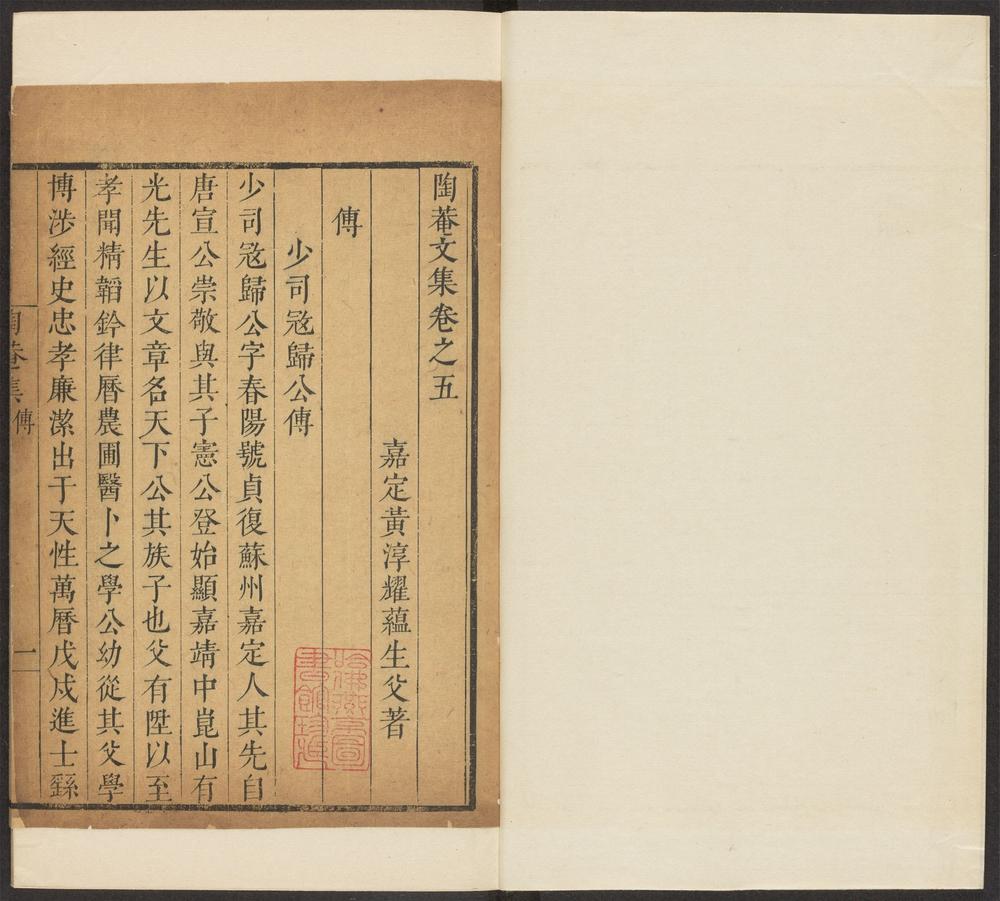 陶菴文集卷之五
嘉定黃淳耀蘊生父著
傳
少司寇歸公傳
少司寇歸公字春陽號貞復蘇州嘉定人其先自
唐宣公崇敬與其子憲公登始顯嘉靖中崑山有
光先生以文章名天下公其族子也父有陞以至
孝聞精韜鈐律曆農圃醫卜之學公幼從其父學
博涉經史忠孝廉潔出于天性萬曆戊戌進士繇
陶菴集
傳
一
哈佛燕京圖
書館珍藏